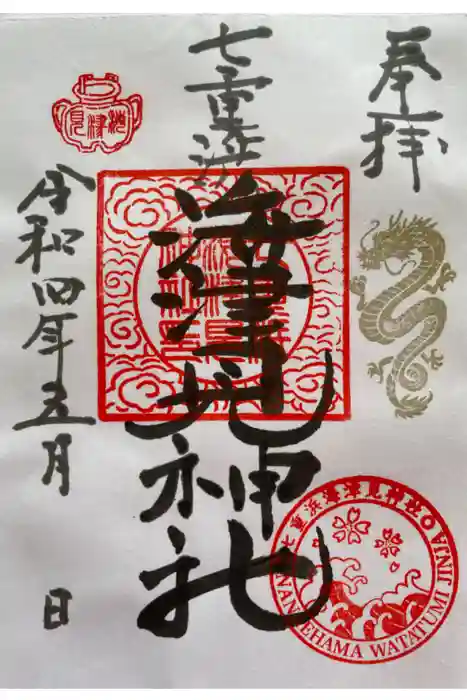 奉拝
七重浜
海津見神社
令和四年五月 日
七重浜海津見神社
NANAEHAMA WATATUMI JINJA